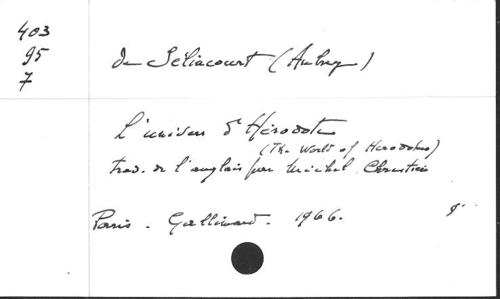 403
95
7
de Sélincourt (Aubrey)
L'univers d'Hérodote
(The World of Herodotus)
trad. de l'anglais par Michel Chrestien
Paris. Gallimard. 1966.